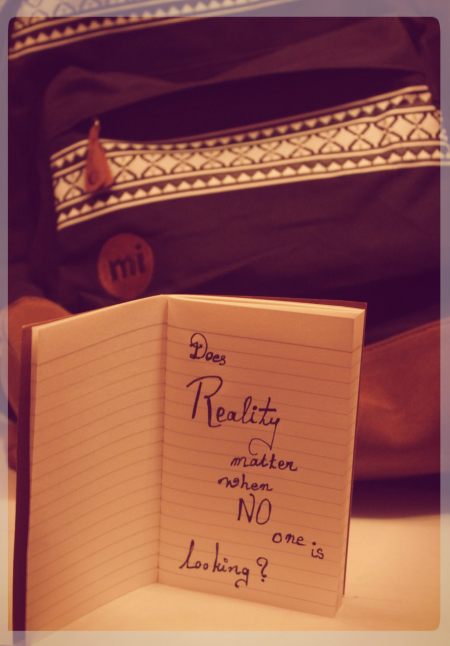 mi
Does
Reality
matter
when
NO
one is
looking?